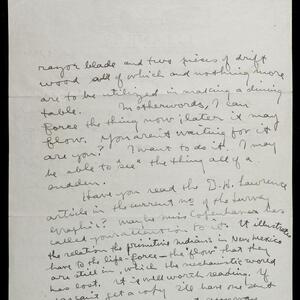 razor blade and two pieces of drift
wood all of which and nothing more
are to be utilized in making a dining
table. In otherwords, I can
force the thing now; later it may
flow. You arent waiting for it
are you? I want to do it. I may
be able to "see" the thing all of a
sudden.
Have you read the D. H. Lawrence
article in the current no. of the Survey
Graphic? Maybe miss Copenhaver has
called your attention to it. It illustrates
the relation the primitive Indians in New Mexico
have to the life-force – the "flow" that they
are still in, which the mechanistic world
has lost. It is well worth reading. If
you can't get a copy I'll have one sent